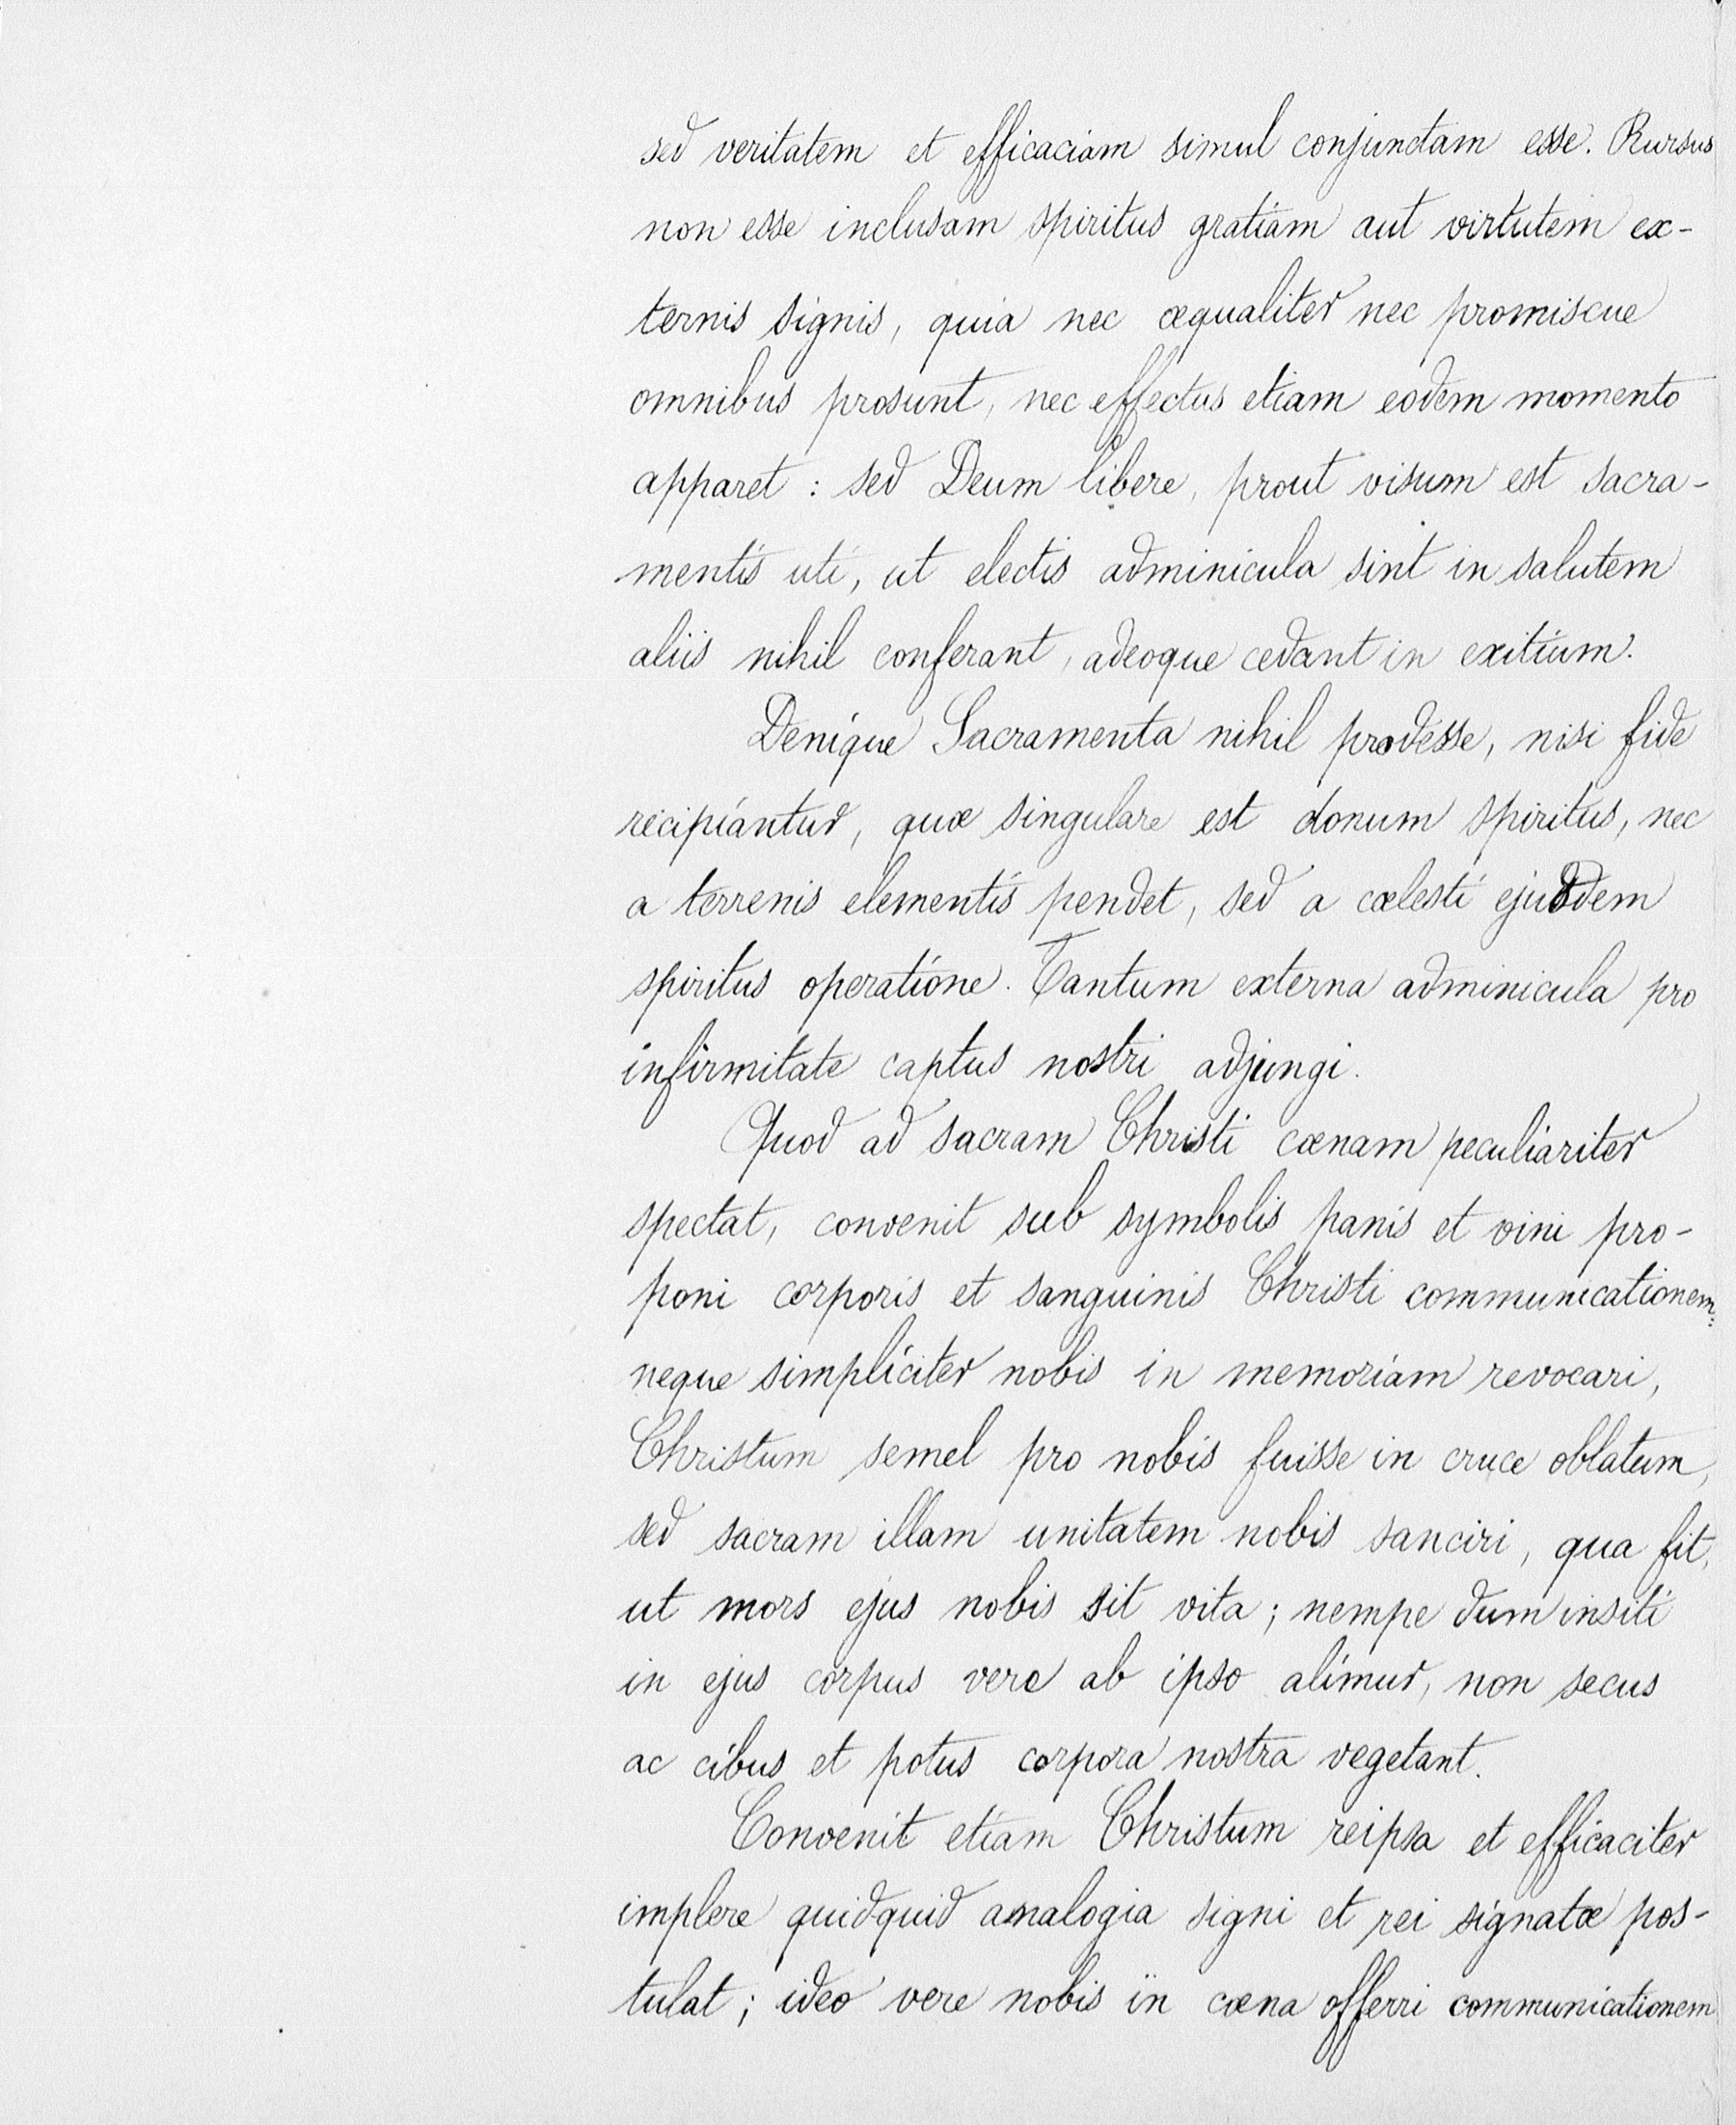 sed veritatem et efficaciam simul conjunctam esse. Rursus
non esse inclusam spiritus gratiam aut virtutem ex-
ternis signis, quia nec æqualiter nec promiscue
omnibus prosunt, nec effectus etiam eodem momento
apparet : sed Deum libere, prout visum est sacra-
mentis uti, ut electis adminicula sint in salutem
aliis nihil conferant, adeoque cedant in exitium.
Denique Sacramenta nihil prodesse, nisi fide
recipiantur, quæ singulare est donum spiritus, nec
a terrenis elementis pendet, sed a cœlesti ejusdem
spiritus operatione. Tantum externa adminicula pro
infirmitate captus nostri adjungi.
Quod ad sacram Christi cœnam peculiariter
spectat, convenit sub symbolis panis et vini pro-
poni corporis et sanguinis Christi communicationem:
neque simpliciter nobis in memoriam revocari,
Christum semel pro nobis fuisse in cruce oblatum,
sed sacram illam unitatem nobis sanciri, qua fit,
ut mors ejus nobis sit vita ; nempe dum insiti
in ejus corpus vere ab ipso alimur, non secus
ac cibus et potus corpora nostra vegetant.
Convenit etiam Christum reipsa et efficaciter
implere quidquid analogia signi et rei signatæ pos-
tulat ; ideo vere nobis in cœna offerri communicationem